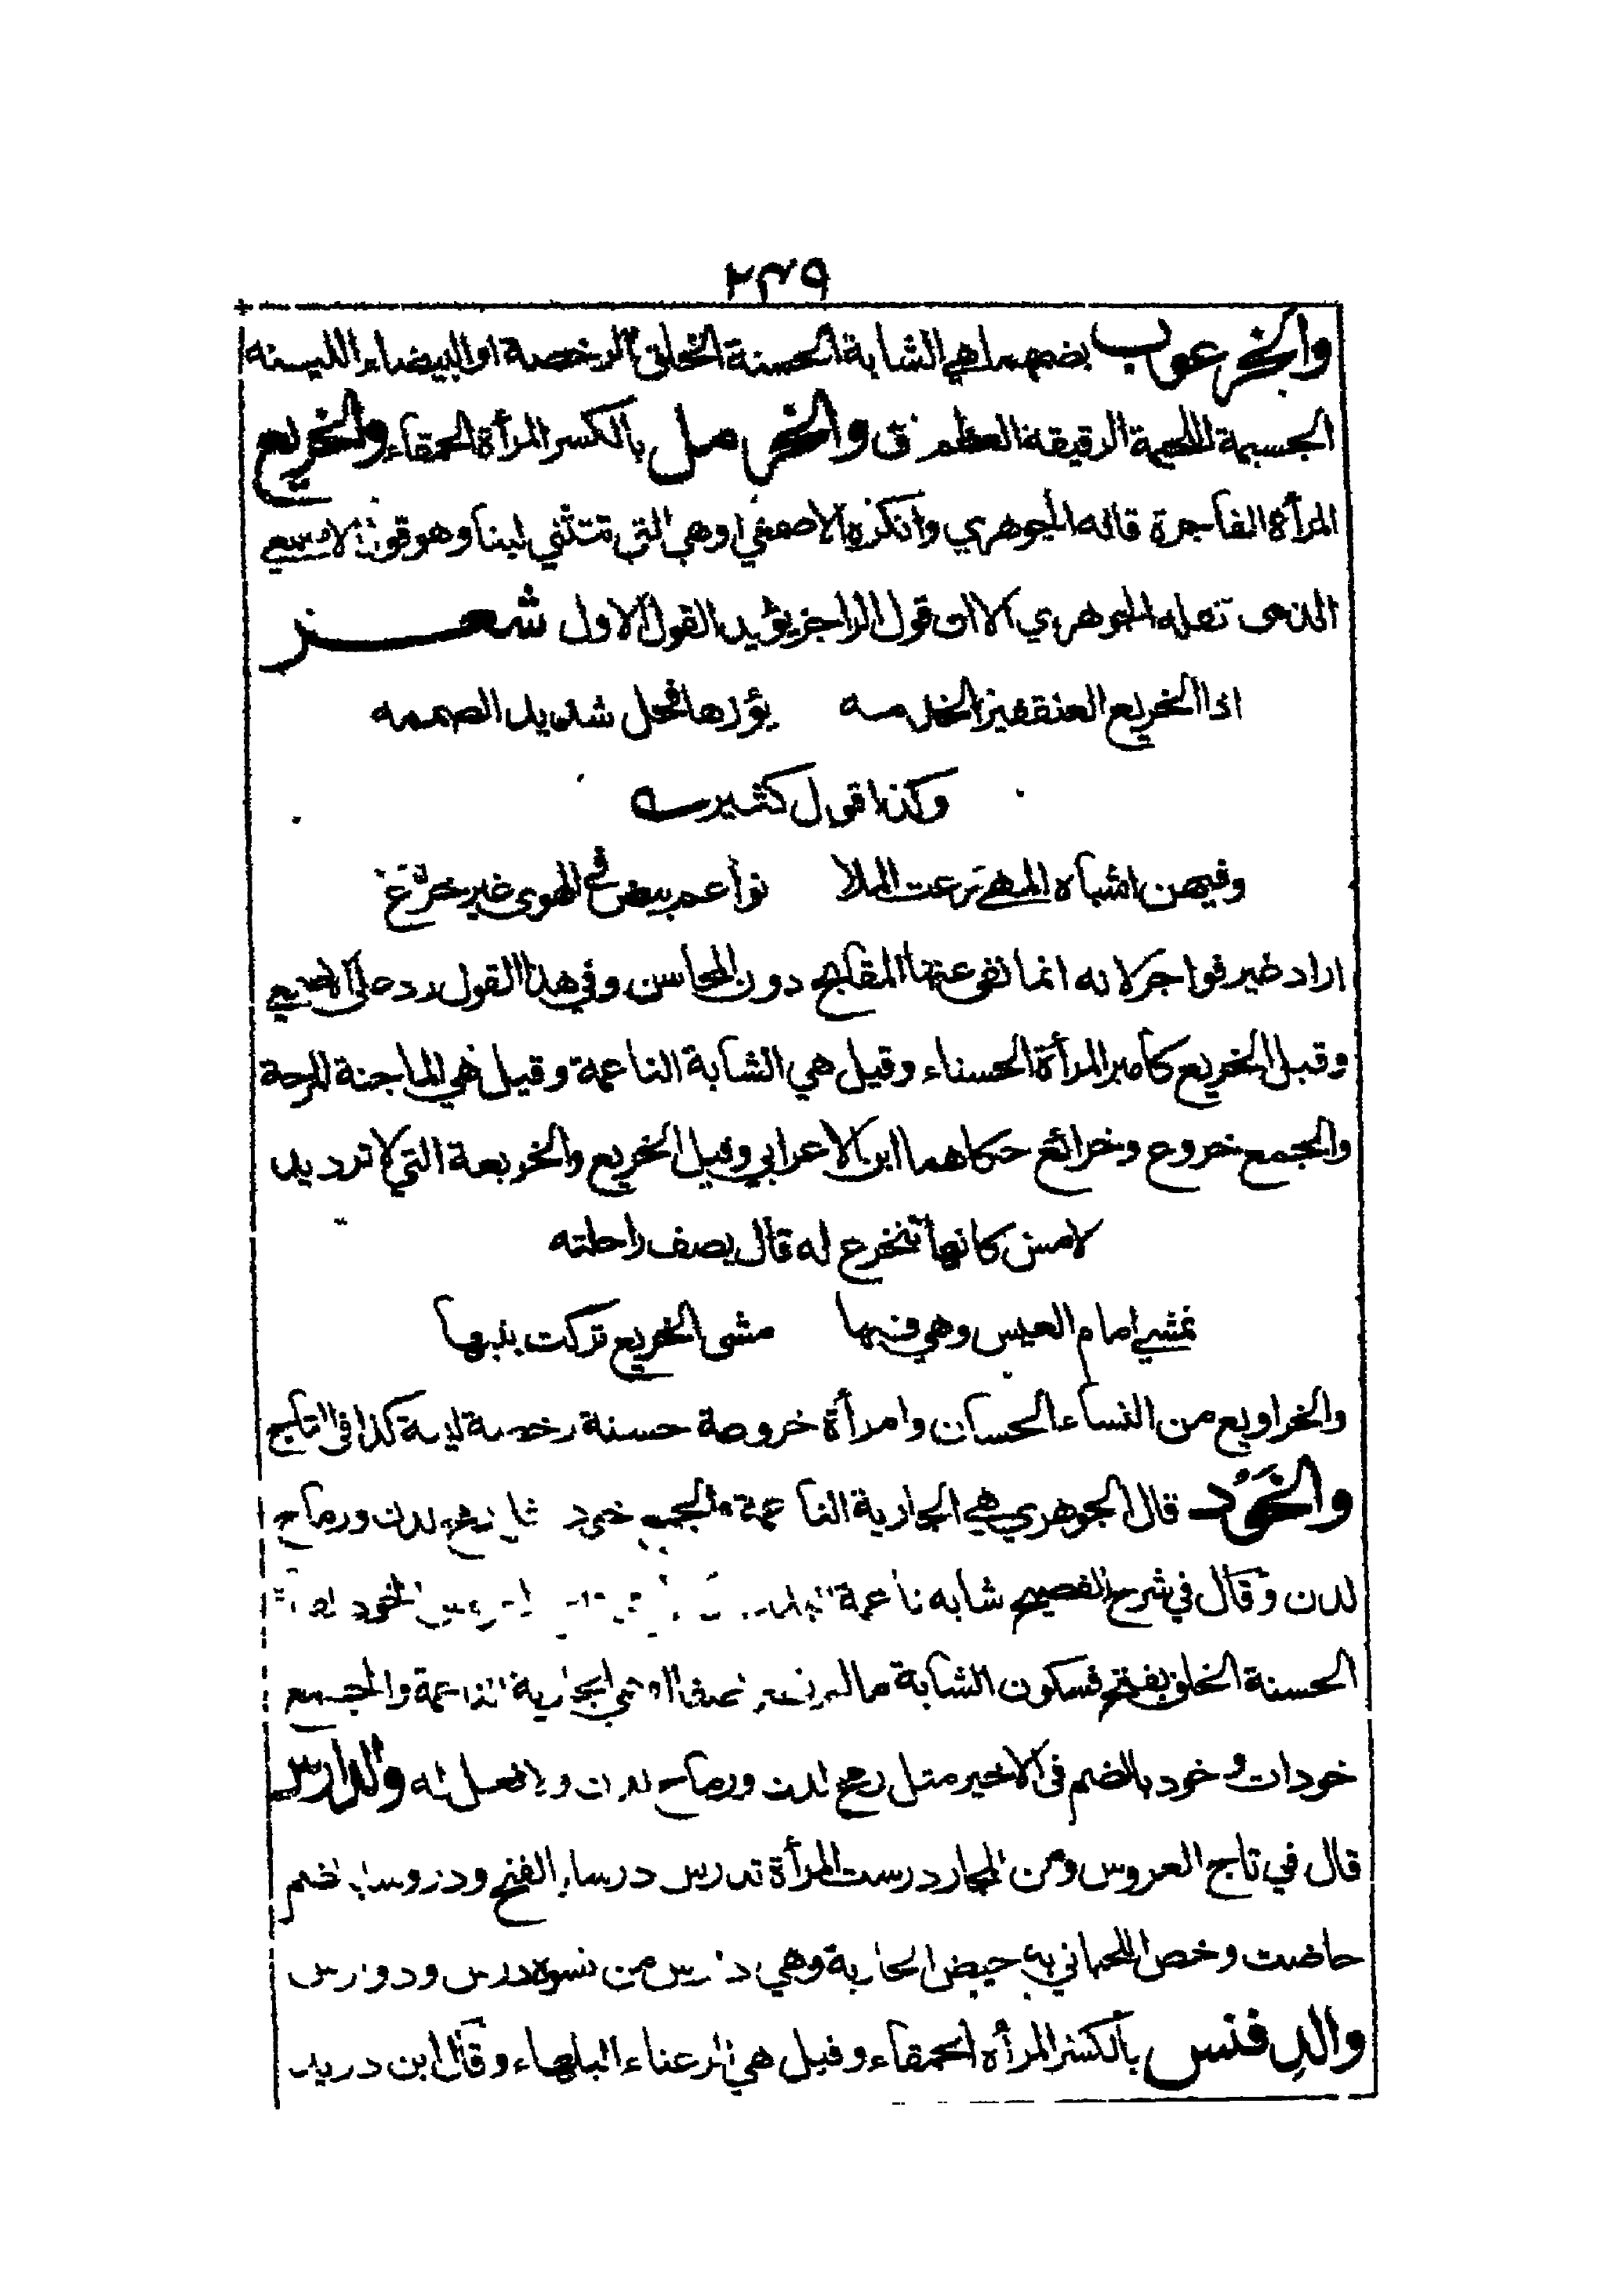 ٢٣٩
والخرعوب بضمهما هي الشابة الحسنة الخلق الرخصة او البيضاء اللينه
الجسيمة اللحيمة الرقيقة العظم ق والخرمل بالكسر المرأة الحمقاء والخريع
المرأة الفاجرة قاله الجوهري وانكره الاصمعي اوهي التي تتثني لينا وهو قول الاصمعي
الذي نقله الجوهري الا ان قول الراجز يؤيد القول الاول شعر
اذا الخريع العنقفيز الخذمه يؤرها فحل شديد الصممه
وكذا قول كثير
وفيهن اشباه المهى رعت الملا نواعم بيض في الهوى غير خرّع
اراد غير فواجر لانه انما نفى عنها المقابح دون المحاسن وفي هذا القول رد على الاصمعي
وقيل الخريع كأمير المرأة الحسناء وقيل هي الشابة الناعمة وقيل هي الماجنة المرحة
والجمع خروع وخرائع حكاهما ابن الاعرابي وقيل الخريع والخريعة التي لا ترد يد
لامس كانها تنخرع له قال يصف راحلته
تمشي امام العيس وهي فيها مشى الخريع تركت بنيها
والخراويع من النساء الحسان وامرأة خروعة حسنة رخصة لينة كذا في التاج
والخَود قال الجوهري هي الجارية الناعمة والجمع خود مثل رمح لدن ورماح
لدن وقال في شرح الفصيح شابه ناعمة الخود
الحسنة الخلق بفتح فسكون الشابة مالم تصر نصفا او هي الجارية الناعمة والجمع
خودات وخود بالضم في الاخير مثل رمح لدن ورماح لدن ولا فعل له والدارس
قال في تاج العروس ومن المجاز درست المرأة تدرس درسا بالفتح ودروسا بالضم
حاضت وخص اللحياني به حيض الجارية وهي دارس من نسوه درس ودوارس
والدِفنس بالكسر المرأه الحمقاء وقيل هي الرعناء البلهاء وقال ابن دريد